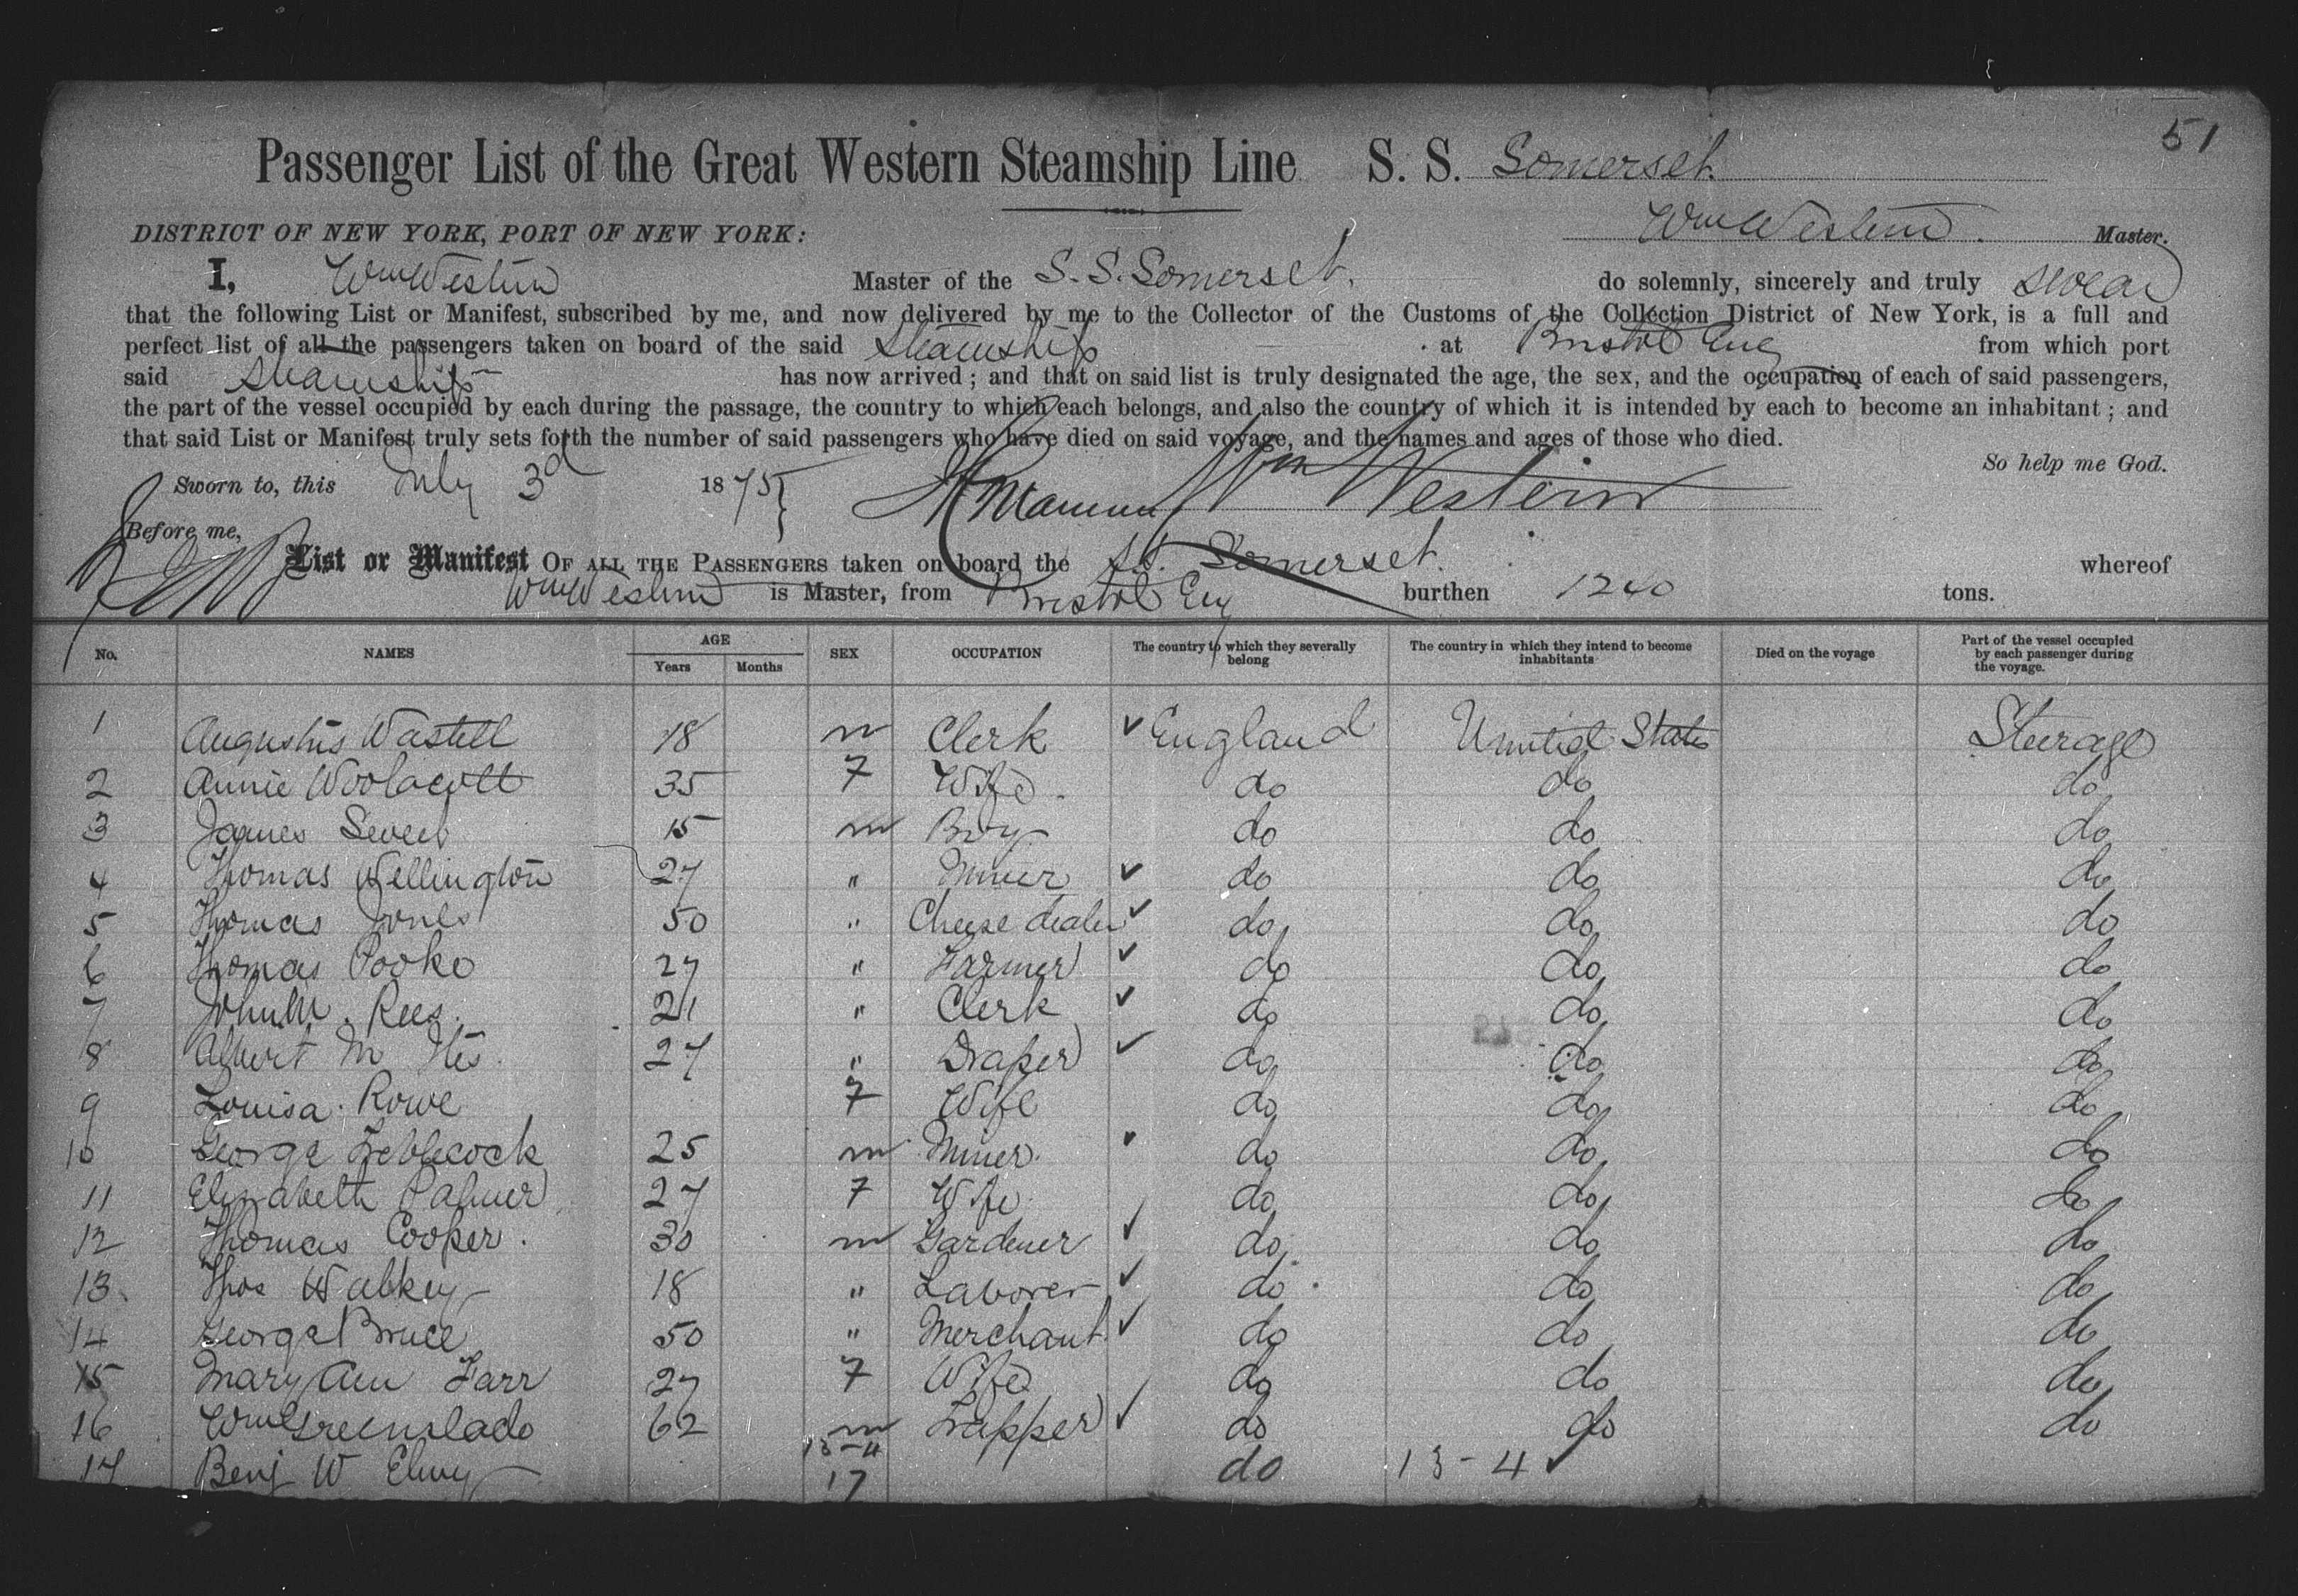 51
Passenger List of the Great Western Steamship Line S. S. Somerset.
DISTRICT OF NEW YORK, PORT OF NEW YORK: Wm Western. Master.
I, Wm Western Master of the S. S. Somerset. do solemnly, sincerely and truly swear
that the following List or Manifest, subscribed by me, and now delivered by me to the Collector of the Customs of the Collection District of New York, is a full and
perfect list of all the passengers taken on board of the said Steamship at Bristol Eng from which port
said Steamship has now arrived; and that on said list is truly designated the age, the sex, and the occupation of each of said passengers,
the part of the vessel occupied by each during the passage, the country to which each belongs, and also the country of which it is intended by each to become an inhabitant; and
that said List or Manifest truly sets forth the number of said passengers who have died on said voyage, and the names and ages of those who died.
So help me God.
Sworn to, this July 3d 1875 } Wm Western
Before me,
List or Manifest OF ALL THE PASSENGERS taken on board the S.S. Somerset. whereof
Wm Western is Master, from Bristol Eng burthen 1240 tons.
No. NAMES AGE Years Months SEX OCCUPATION The country to which they severally belong The country in which they intend to become inhabitants Died on the voyage Part of the vessel occupied by each passenger during the voyage.
1 Augustus Wastell 18 m Clerk ✓ England United States Steerage
2 Annie Woolacott 35 F Wife. do do do
3 James 15 m Boy do do do
4 Thomas Wellington 27 " Miner ✓ do do do
5 Thomas Jones 50 " Cheese dealer ✓ do do do
6 Thomas Pooke 27 " Farmer ✓ do do do
7 John M. Rees. 21 " Clerk ✓ do do do
8 Albert M 27 " Draper ✓ do do do
9 Louisa Rowe F Wife do do do
10 George 25 m Miner. ✓ do do do
11 Elizabeth Palmer 27 F Wife do do do
12 Thomas Cooper. 30 m Gardener ✓ do do do
13. Thos Walkey 18 " Laborer ✓ do do do
14 George Bruce 50 " Merchant ✓ do do do
15 Mary Ann Farr 27 F Wife do do do
16 Wm Greenslade 62 m ✓ do do do
13-4
17 Benj W 17 do 13-4 ✓